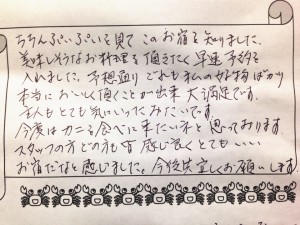 ちちんぷいぷいを見て このお宿を知りました。
美味しそうなお料理を頂きたく 早速予約を
入れました。予想通り どれも私の好物ばかり
本当においしく頂くことが出来 大満足です。
主人もとても気にいったみたいです。
今度はカニを食べに来たいネと思っております。
スタッフの方 どの方も皆 感じ良く とても いい
お宿だなと感じました。今後共宜しくお願いします。